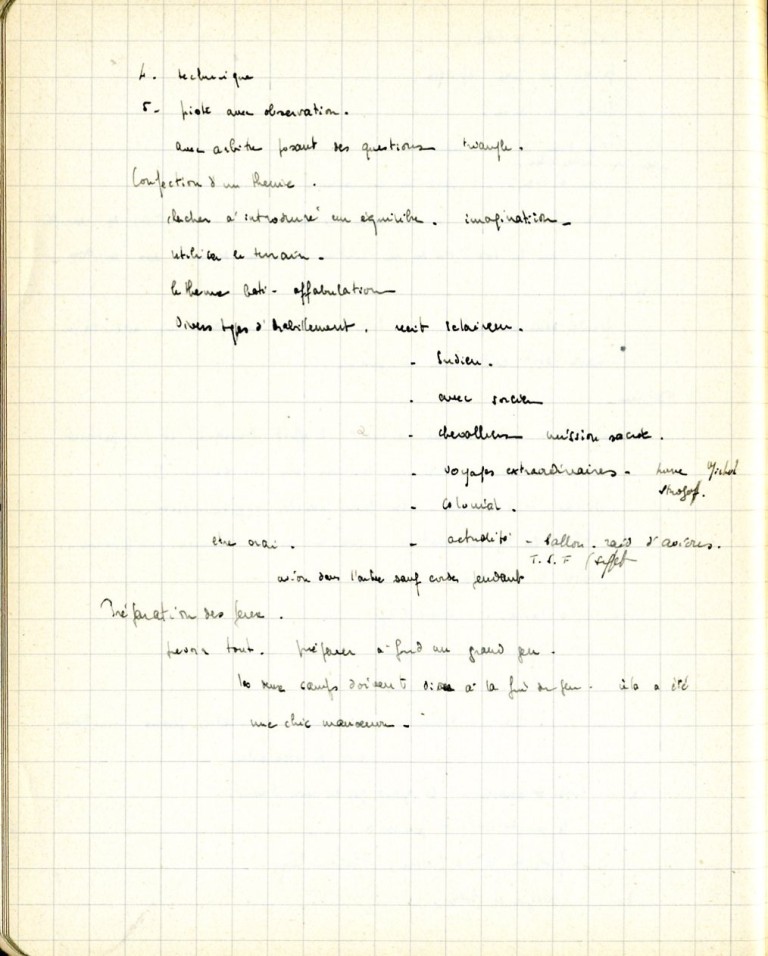 4. technique
5- piste avec observation.
avec arbitre posant des questions triangle.
Confection d'un theme.
clocher à introduire un équilibre. imagination -
utiliser le terrain -
le theme bati - affabulation
Divers types d'habillement. recit eclaireur.
- Indien.
. avec sorcier
- chevalliers mission sacrée.
- voyages extraordinaires - Michel
Strogof.
- colonial.
etre vrai. - actualité - ballon. raid d'avions.
T.S.F (sifflet
avion dans l'arbre sauf cordes pendant
Préparation des jeux.
prevoir tout. préparer à fond un grand jeu.
les deux camps doivent dire à la fin du jeu. cela a été
une chic manoeuvre -